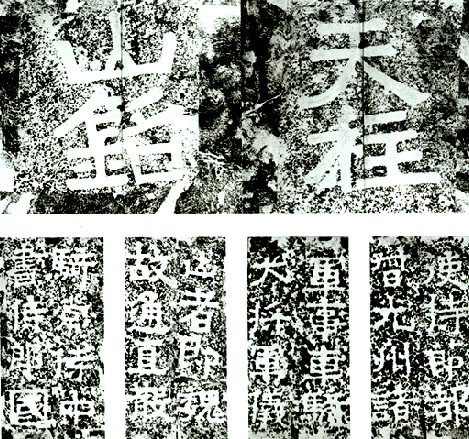 天柱
山銘
使持節都
督光州諸
軍事車騎
大將軍儀
公者即魏
故通直散
騎常侍中
書侍郎國